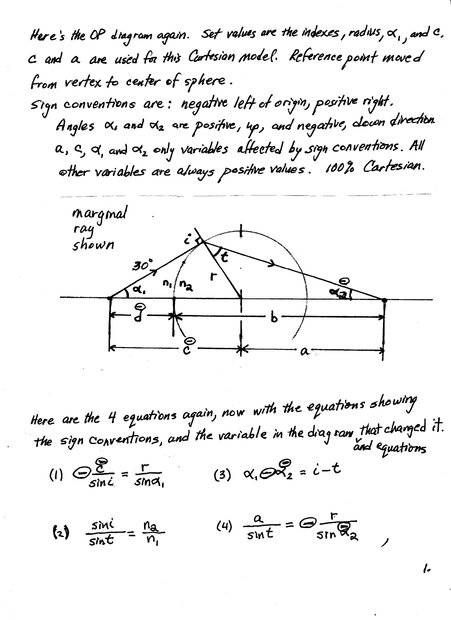 Here's the OP diagram again. Set values are the indexes, radius, α₁, and c.
c and a are used for this Cartesian model. Reference point moved
from vertex to center of sphere.
Sign conventions are: negative left of origin, positive right.
Angles α₁ and α₂ are positive, up, and negative, down direction
a, c, α₁ and α₂ only variables affected by sign conventions. All
other variables are always positive values. 100% Cartesian.
marginal
ray
shown
i
t
30°
r
α₁
n₁
n₂
⊖
α₂
⊖
d
b
⊖
c
a
Here are the 4 equations again, now with the equations showing
the sign conventions, and the variable in the diagram that changed it.
and equations
(1) ⊖ ⊖c / sin i = r / sin α₁
(3) α₁ ⊖ ⊖α₂ = i - t
(2) sin i / sin t = n₂ / n₁
(4) a / sin t = ⊖ r / sin ⊖α₂ ,
1.